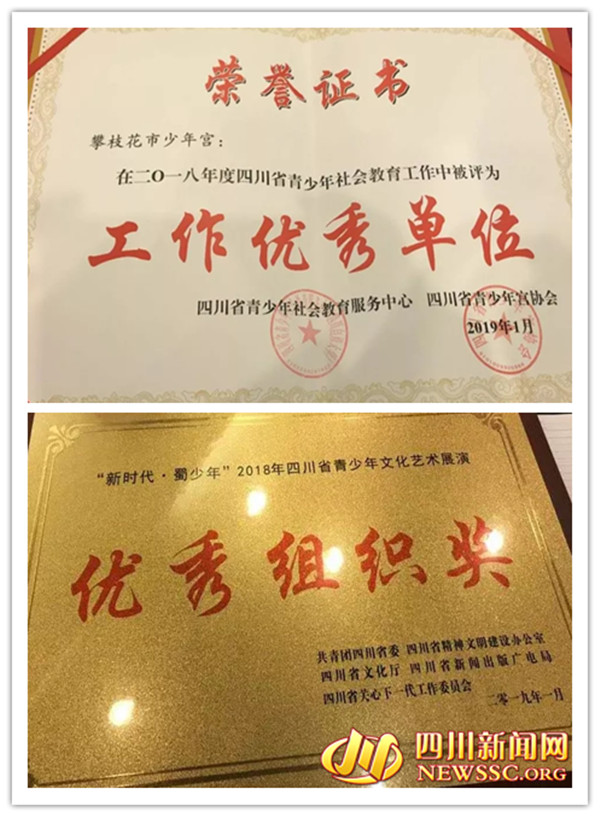 荣誉证书
攀枝花市少年宫：
在二〇一八年度四川省青少年社会教育工作中被评为
工作优秀单位
四川省青少年社会教育服务中心 四川省青少年宫协会
2019年1月
“新时代·蜀少年”2018年四川省青少年文化艺术展演
优秀组织奖
共青团四川省委 四川省精神文明建设办公室
四川省文化厅 四川省新闻出版广电局
四川省关心下一代工作委员会
二零一九年一月
四川新闻网
NEWSSC.ORG